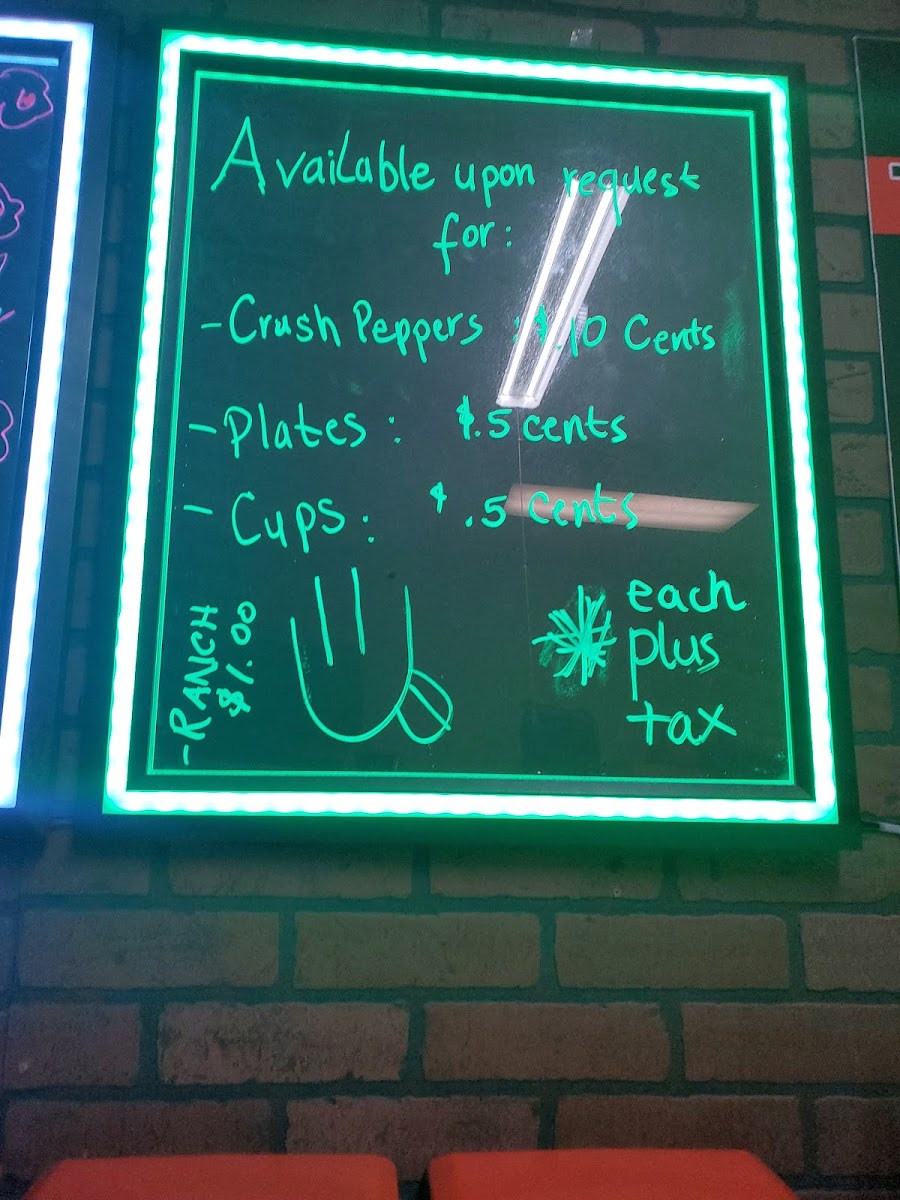 Available upon request
for:
- Crush Peppers : $.10 Cents
- Plates: $.5 cents
- Cups: $.5 Cents
- RANCH
$1.00
* each
plus
tax